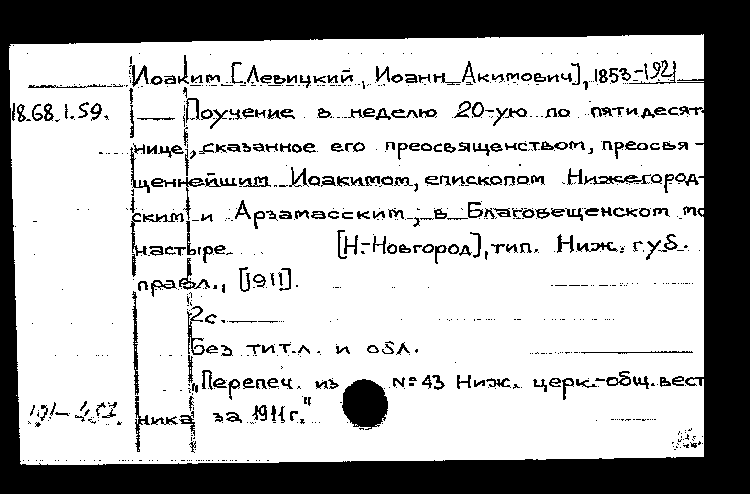 Иоаким [Левицкий, Иоанн Акимович], 1853-1921
18.68.1.59. Поучение в неделю 20-ую по пятидесят-
нице, сказанное его преосвященством, преосвя-
щеннейшим Иоакимом, епископом Нижегород-
ским и Арзамасским, в Благовещенском мо
настыре. [Н.-Новгород], тип. Ниж. губ.
правл., [1911].
2с.
Без тит.л. и обл.
"Перепеч. из №43 Ниж. церк.-общ. вест
ника за 1911г."